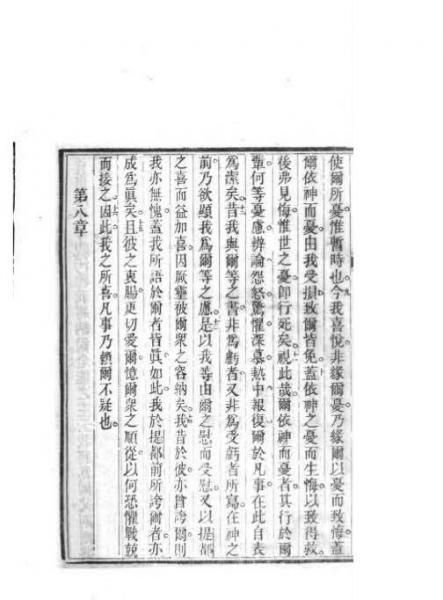 使爾所憂惟暫時也今我喜悅非緣爾憂乃緣爾以憂而致悔蓋
爾依神而憂由我受損致爾皆免蓋依神之憂而生悔以致得救
後弗見悔惟世之憂卽行死矣視此哉爾依神而憂者其行於爾
輩何等憂慮辨論怨怒驚懼深慕熱中報復爾於凡事在此自表
爲潔矣昔我與爾等之書非爲虧者又非爲受虧者所寫在神之
前乃欲顯我爲爾等之慮是以我等由爾之慰而受慰又以提都
之喜而益加喜因厥靈被爾衆之容納矣我昔於彼亦曾誇爾則
我亦無愧蓋我所語於爾者皆眞如此我於提都前所誇爾者亦
成爲眞矣且彼之衷腸更切愛爾憶爾衆之順從以何恐懼戰兢
而接之因此我之所喜凡事乃賴爾不疑也
第八章